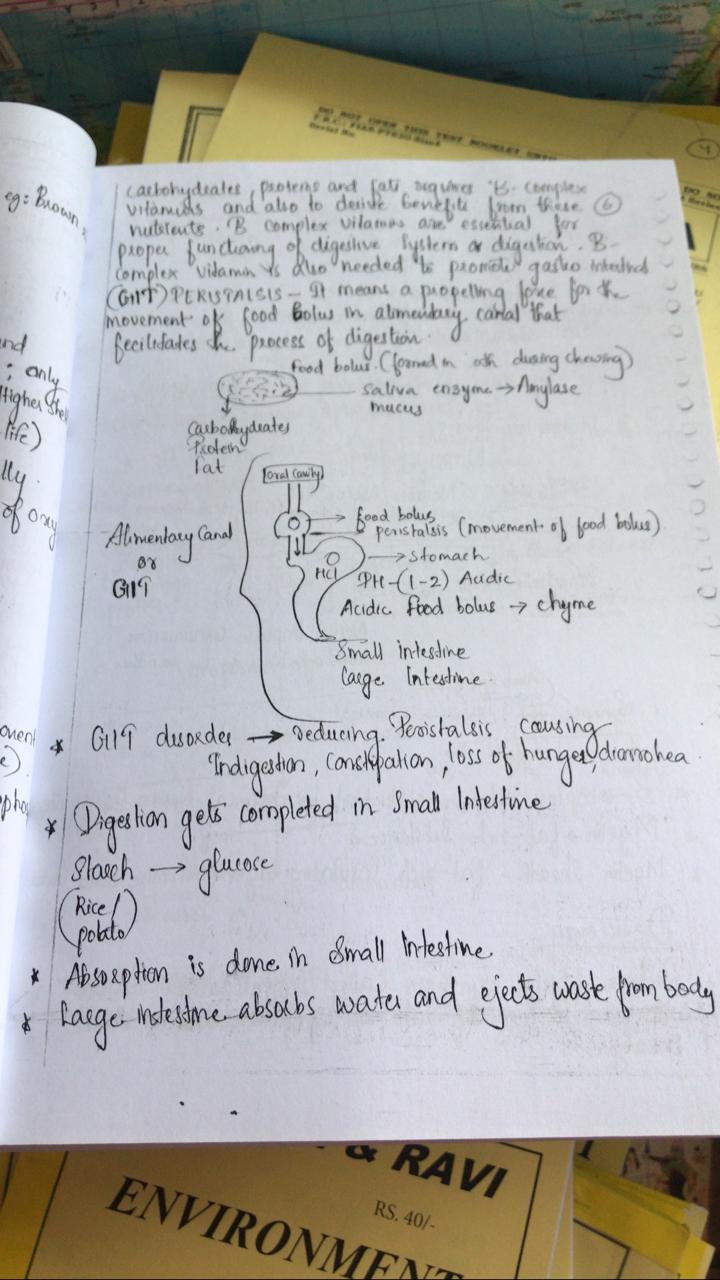 DO NOT OPEN THIS TEST BOOKLET UNTIL
Serial No.
4
eg: Brown
carbohydrates, proteins and fats requires 'B-complex
vitamins and also to derive benefits from these 6
nutrients. B complex vitamins are essential for
proper functioning of digestive system or digestion. B-
complex vitamin is also needed to promote gastro intestinal
(GIT) PERISTALSIS - It means a propelling force for the
movement of food Bolus in alimentary canal that
fecilitates the process of digestion.
Food bolus. (formed in during chewing)
saliva enzyme → Amylase
mucus
Carbohydrates
Protein
Fat
oral cavity
food bolus
peristalsis (movement of food bolus)
Alimentary Canal
or
GIT
→ stomach
HCl
PH-(1-2) Acidic
Acidic food bolus → chyme
Small intestine
Large Intestine
* GIT disorder → reducing Peristalsis causing
Indigestion, Constipation, loss of hunger, diarrohea.
* Digestion gets completed in Small Intestine
Starch → glucose
(Rice/
potato)
* Absorption is done in Small Intestine
* Large intestine absorbs water and ejects waste from body
nd
; only
Higher shel
life)
lly.
of oxy
onent
e).
& RAVI
RS. 40/-
ENVIRONMENT